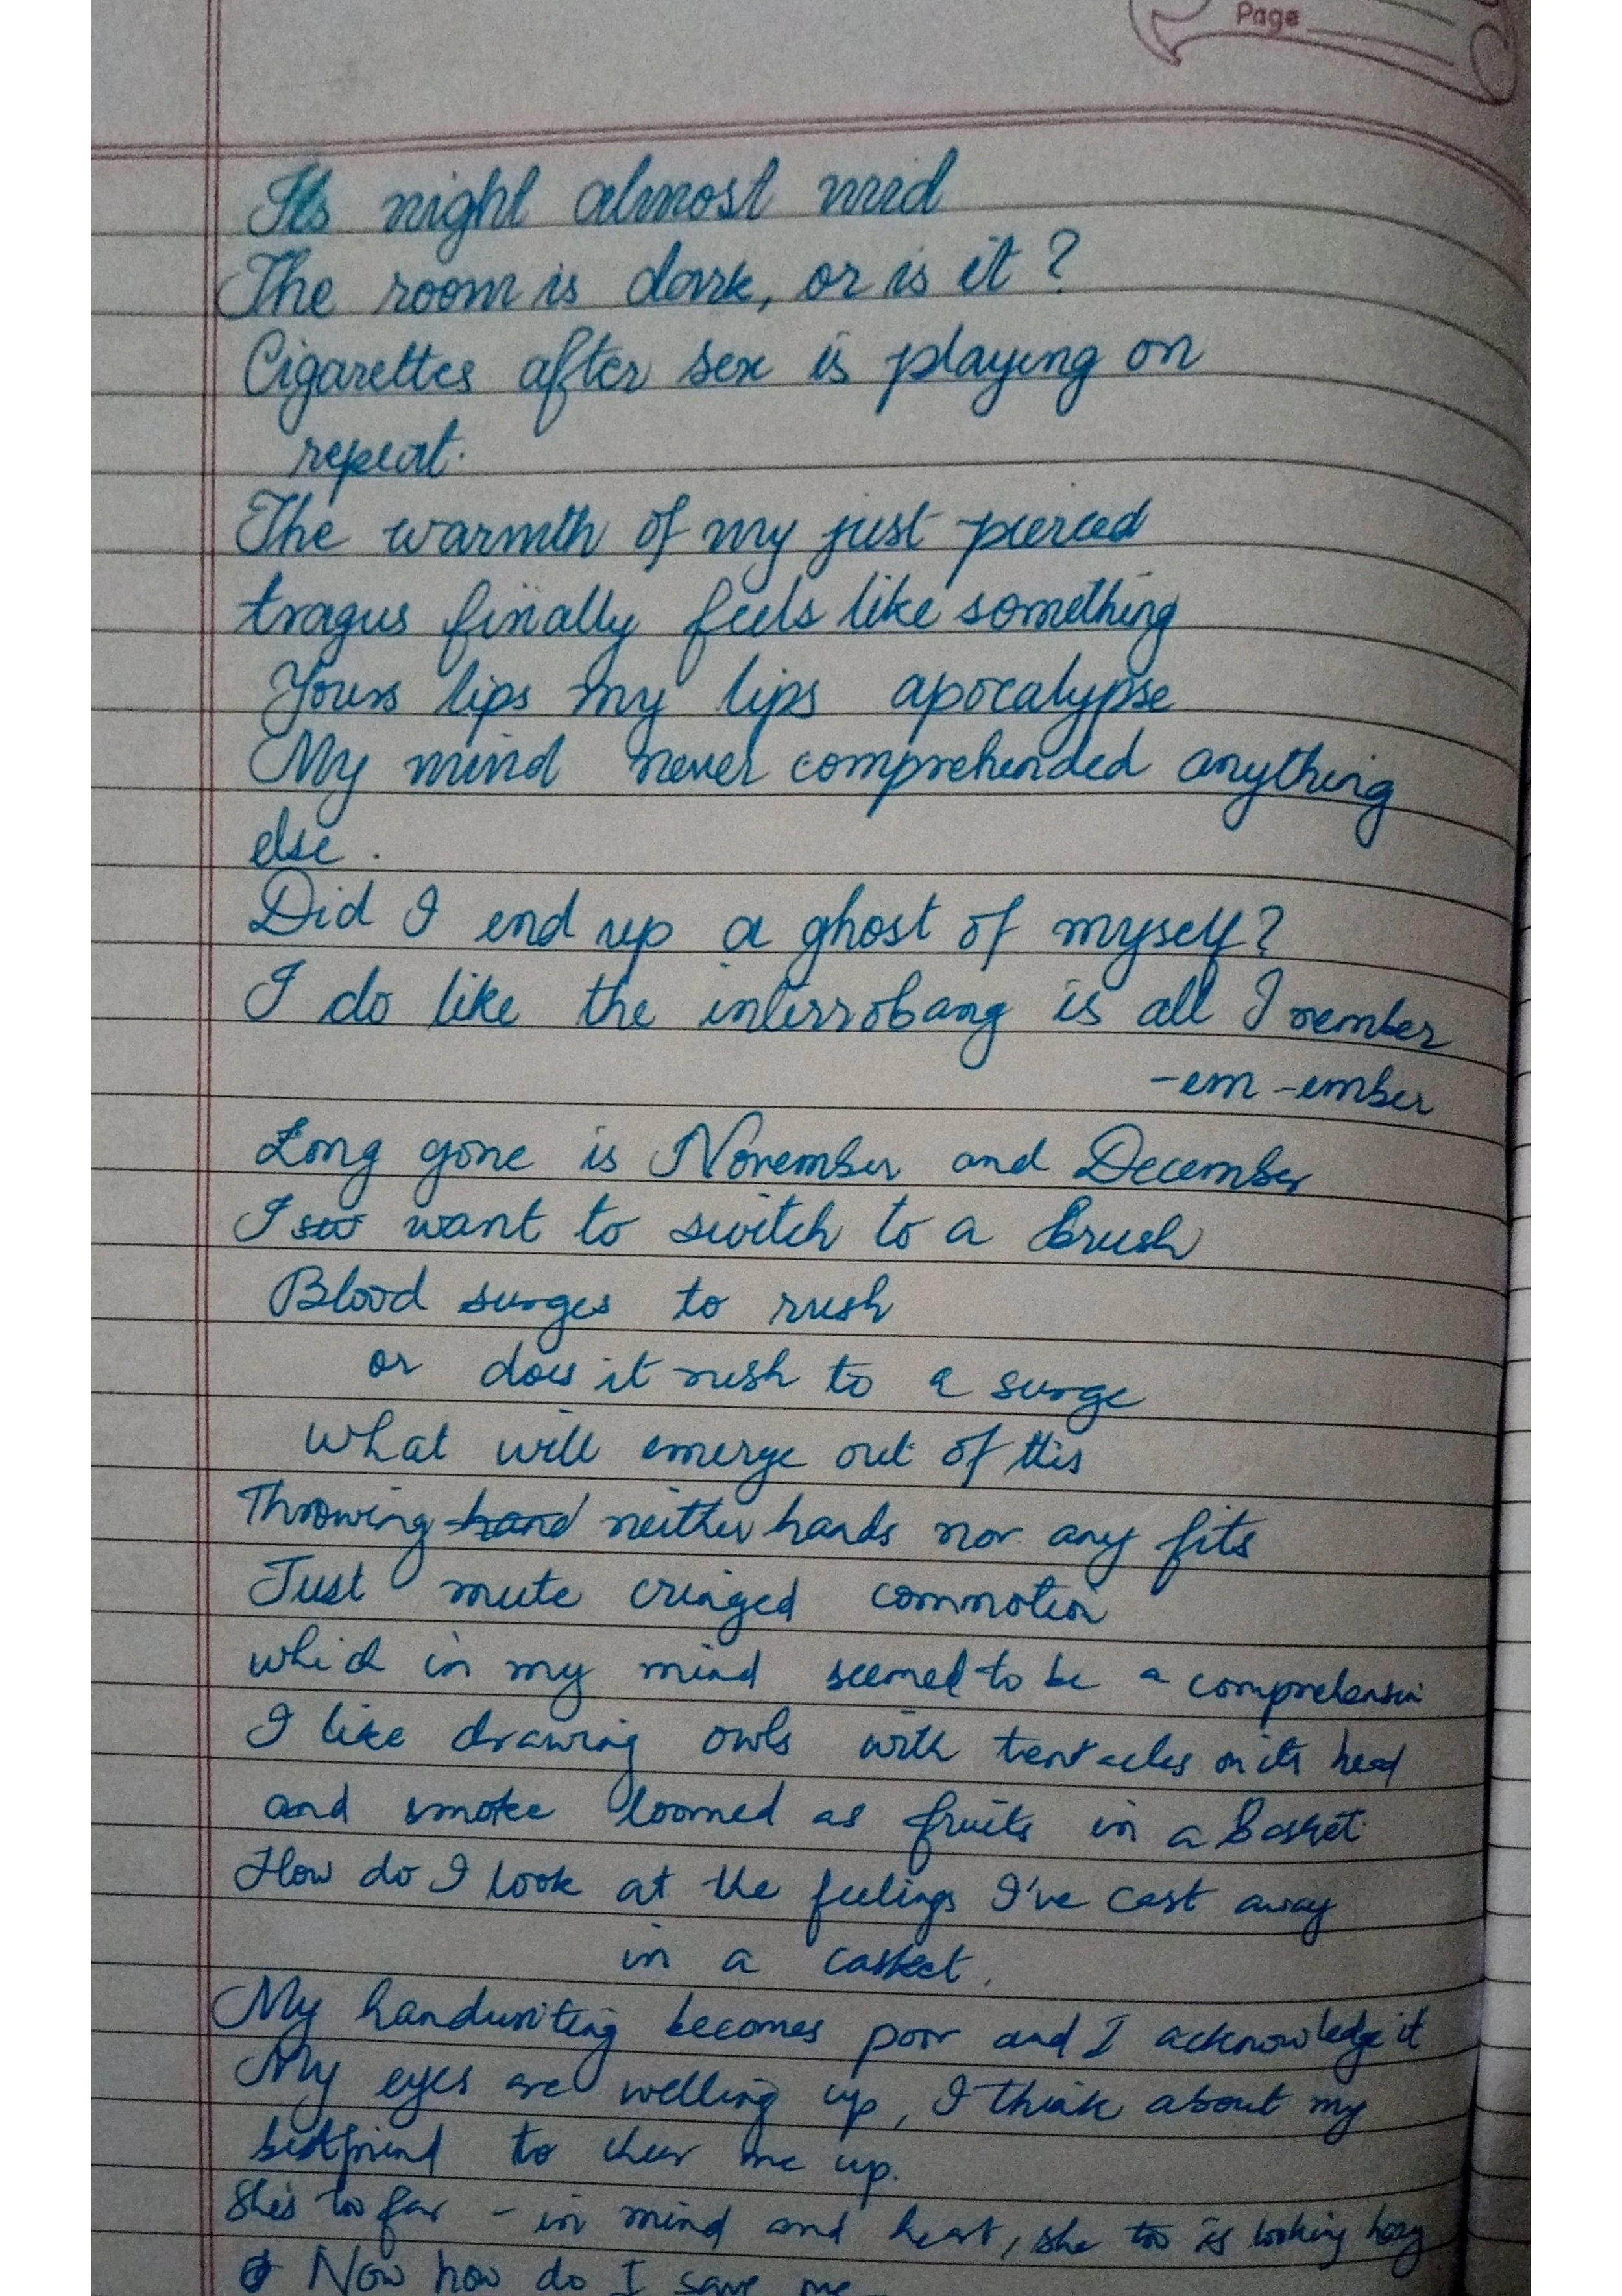 Page
Its night almost mid
The room is dark, or is it?
Cigarettes after sex is playing on
repeat.
The warmth of my just pierced
tragus finally feels like something
Yours lips my lips apocalypse
My mind never comprehended anything
else.
Did I end up a ghost of myself?
I do like the interrobang is all I remember
-em -ember
Long gone is November and December
I want to switch to a brush
Blood surges to rush
or does it rush to a surge
what will emerge out of this
Throwing hand neither hands nor any fits
Just mute cringed commotion
which in my mind seemed to be a comprehension
I like drawing owls with tentacles on its head
and smoke loomed as fruits in a basket
How do I look at the feelings I've cast away
in a casket.
My handwriting becomes poor and I acknowledge it
My eyes are welling up, I think about my
bestfriend to cheer me up.
She's too far - in mind and heart, she too is looking hazy
Now how do I save me